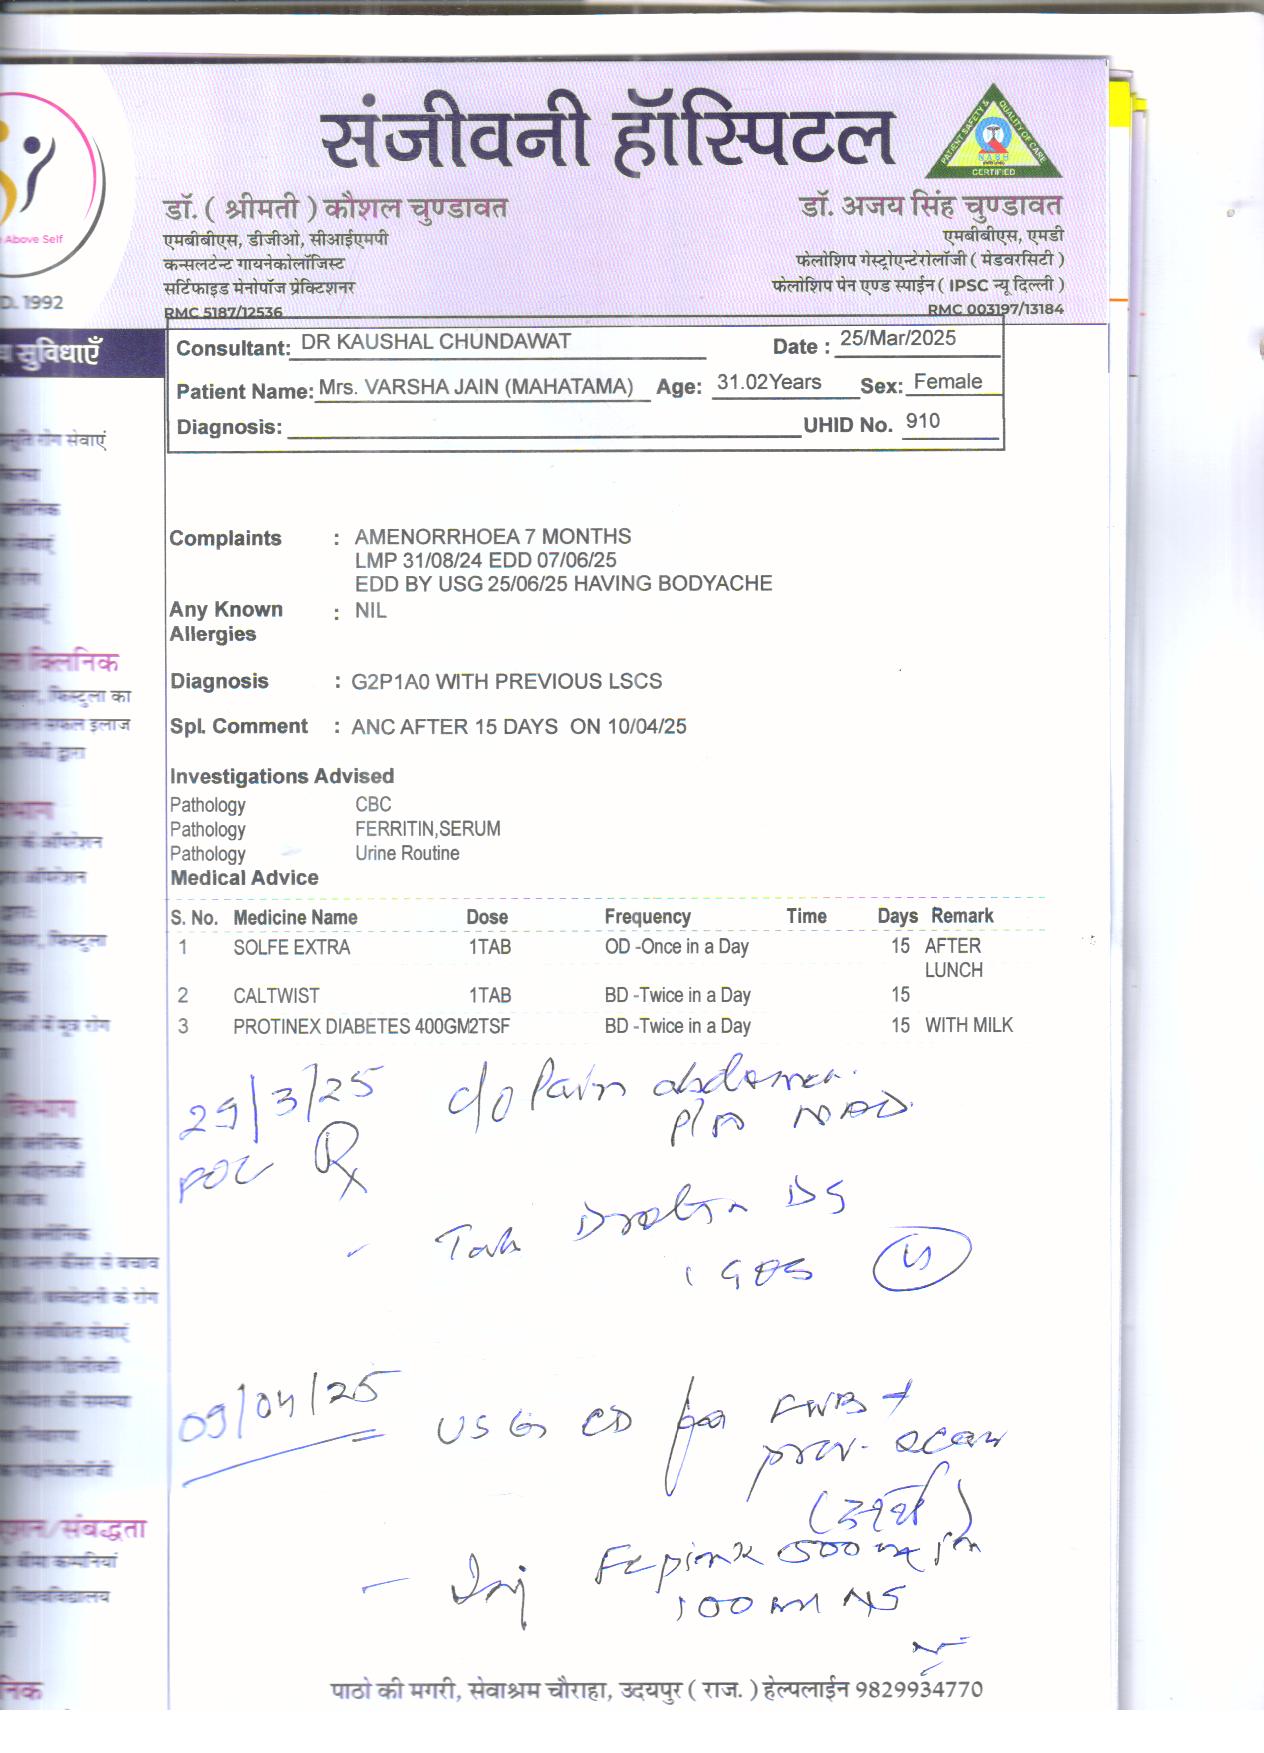 संजीवनी हॉस्पिटल
PATIENT SAFETY & QUALITY OF CARE
NABH
CERTIFIED
डॉ. ( श्रीमती ) कौशल चुण्डावत
एमबीबीएस, डीजीओ, सीआईएमपी
कन्सलटेन्ट गायनेकोलॉजिस्ट
सर्टिफाइड मेनोपॉज प्रेक्टिशनर
RMC 5187/12536
डॉ. अजय सिंह चुण्डावत
एमबीबीएस, एमडी
फेलोशिप गेस्ट्रोएन्टेरोलॉजी ( मेडवरसिटी )
फेलोशिप पेन एण्ड स्पाईन ( IPSC न्यू दिल्ली )
RMC 003197/13184
Above Self
D. 1992
सुविधाएँ
Consultant: DR KAUSHAL CHUNDAWAT Date : 25/Mar/2025
Patient Name: Mrs. VARSHA JAIN (MAHATAMA) Age: 31.02Years Sex: Female
Diagnosis: UHID No. 910
Complaints : AMENORRHOEA 7 MONTHS
LMP 31/08/24 EDD 07/06/25
EDD BY USG 25/06/25 HAVING BODYACHE
Any Known Allergies : NIL
Diagnosis : G2P1A0 WITH PREVIOUS LSCS
Spl. Comment : ANC AFTER 15 DAYS ON 10/04/25
Investigations Advised
Pathology CBC
Pathology FERRITIN,SERUM
Pathology Urine Routine
Medical Advice
S. No. Medicine Name Dose Frequency Time Days Remark
1 SOLFE EXTRA 1TAB OD -Once in a Day 15 AFTER LUNCH
2 CALTWIST 1TAB BD -Twice in a Day 15
3 PROTINEX DIABETES 400GM 2TSF BD -Twice in a Day 15 WITH MILK
29/3/25 c/o Pain abdomen.
P/A NAD
Rx
- Tab Drotin DS
1 SOS
09/04/25 USG CD for FWB +
prev. scar
- Inj Fcpink 500 mg in
100 ml NS
पाठो की मगरी, सेवाश्रम चौराहा, उदयपुर ( राज. ) हेल्पलाईन 9829934770